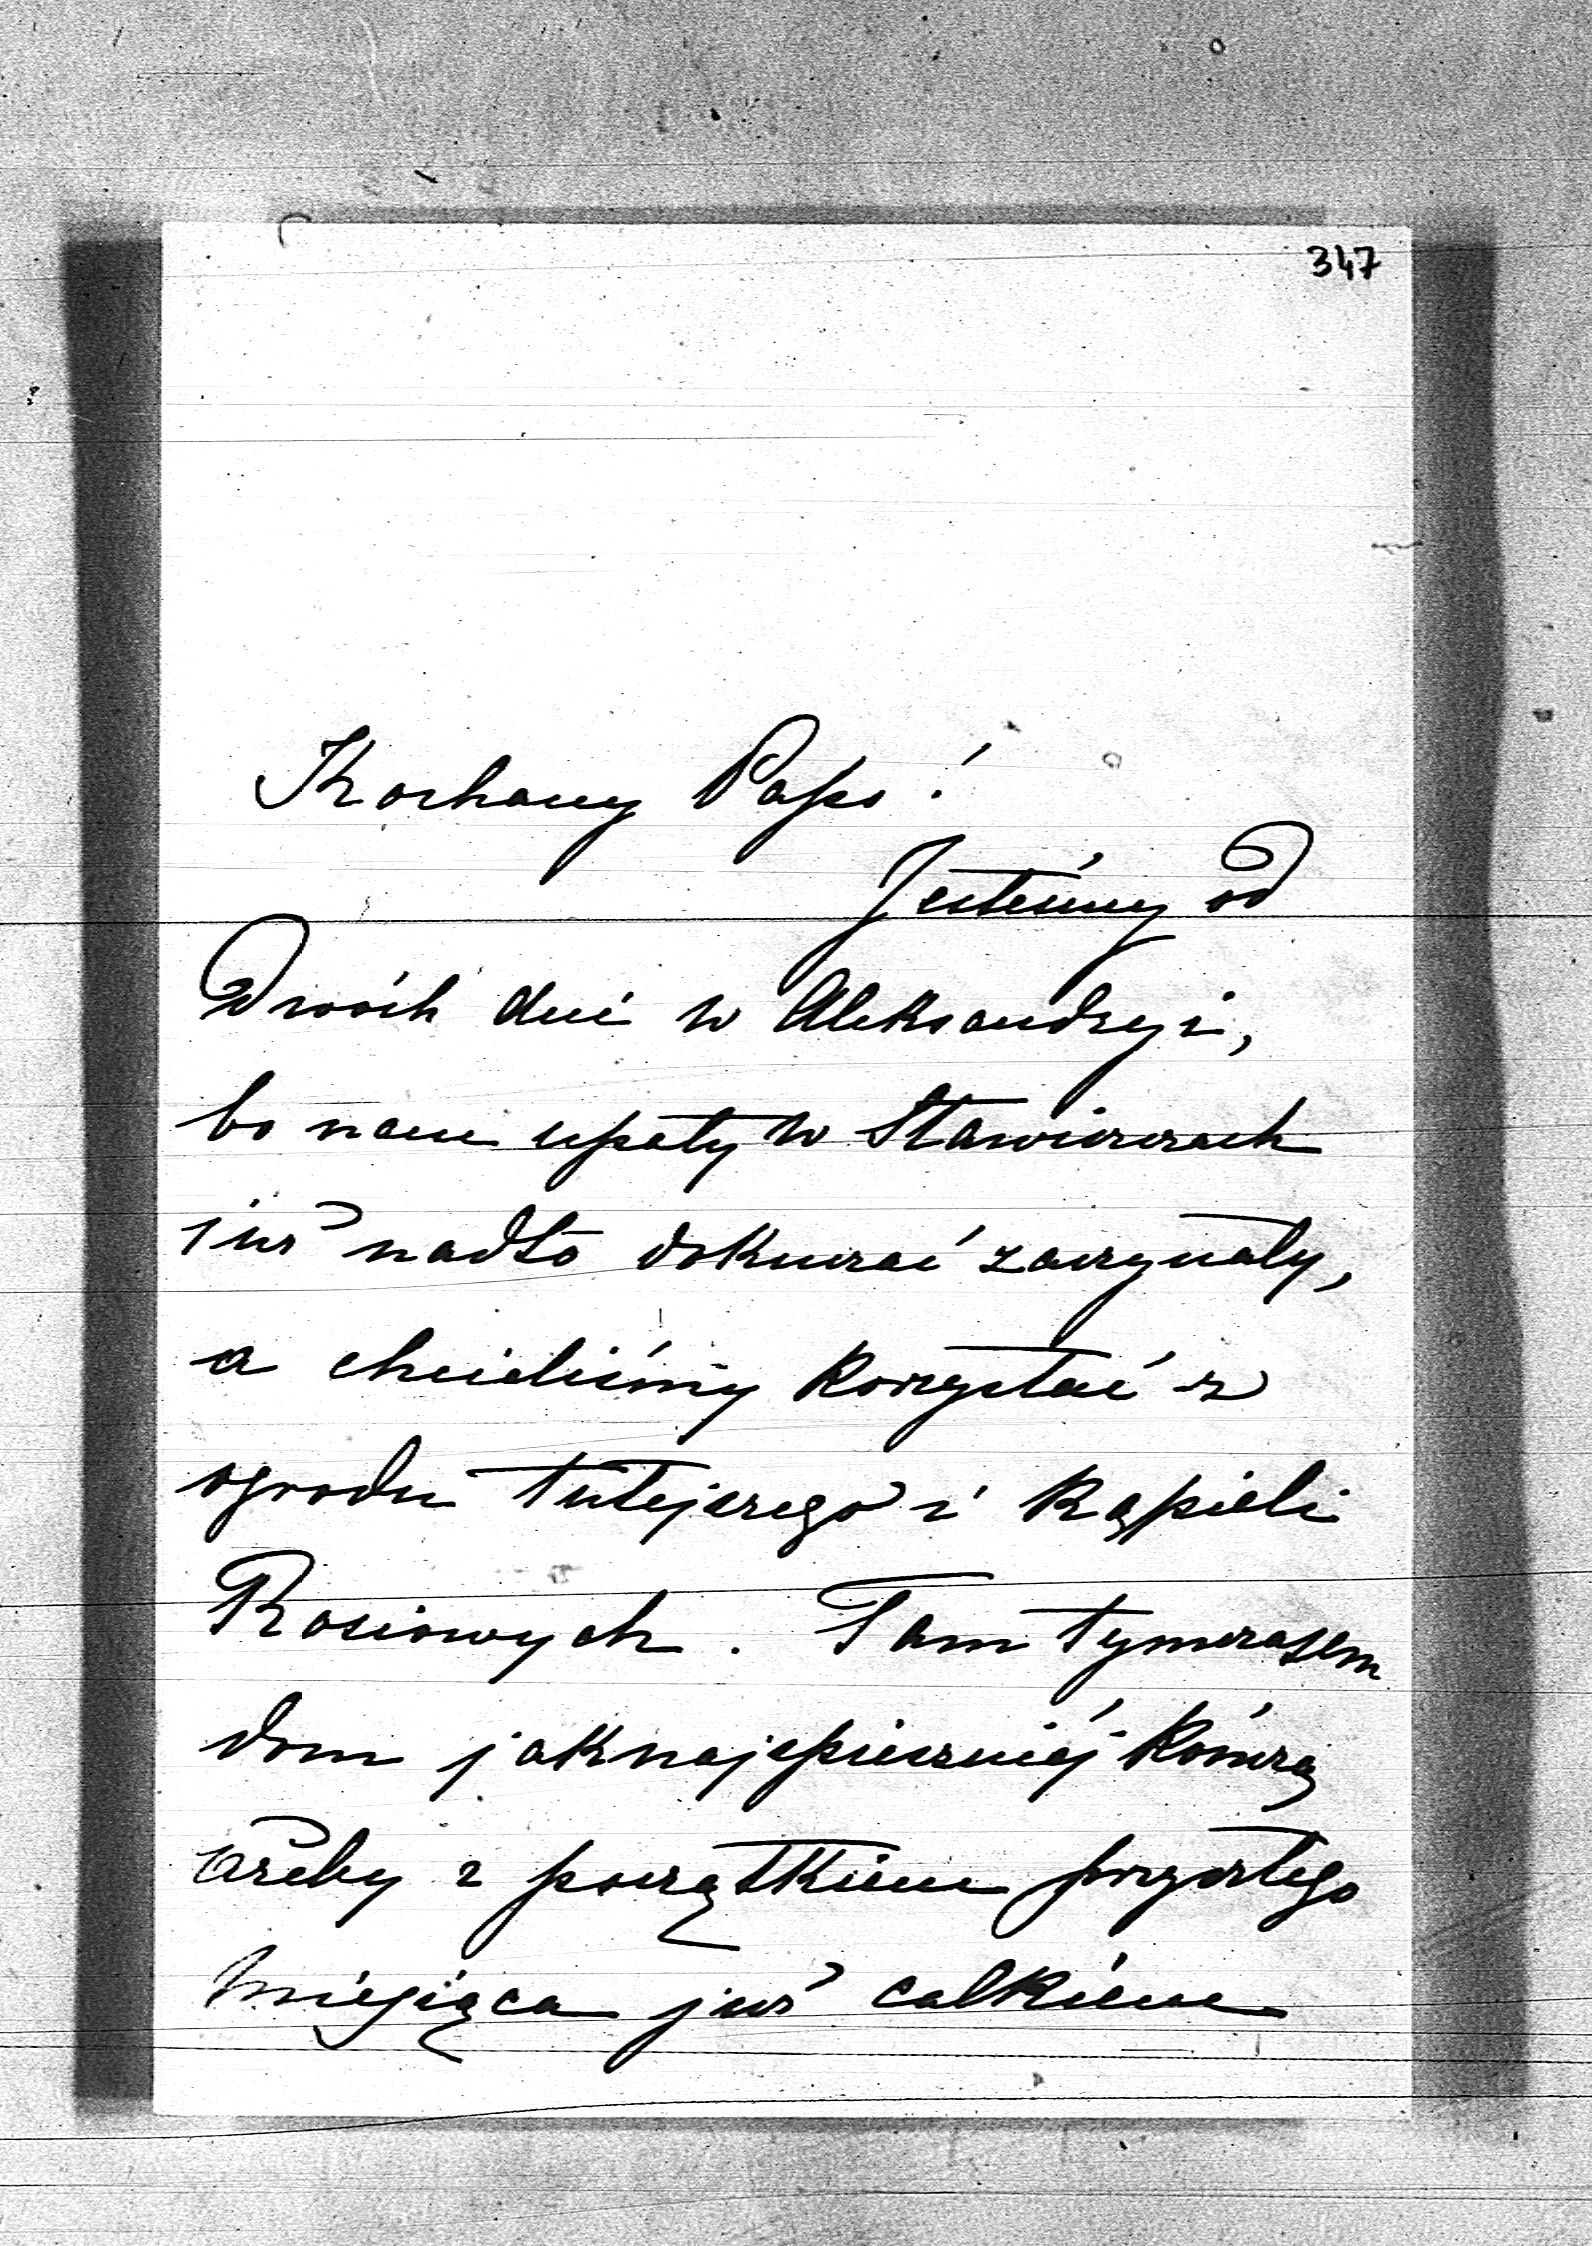 347
Kochany Papo!
Jesteśmy od
dwóch dni w Aleksandryi,
bo nam upały w Stawiszczach
już nadto dokuczać zaczynały,
a chcieliśmy korzystać z
ogrodu tutejszego i kąpieli
Rosiowych. Tam tymczasem
dom jaknajspieszniéj kończą
ażeby z początkiem przyszłego
miesiąca już całkiem